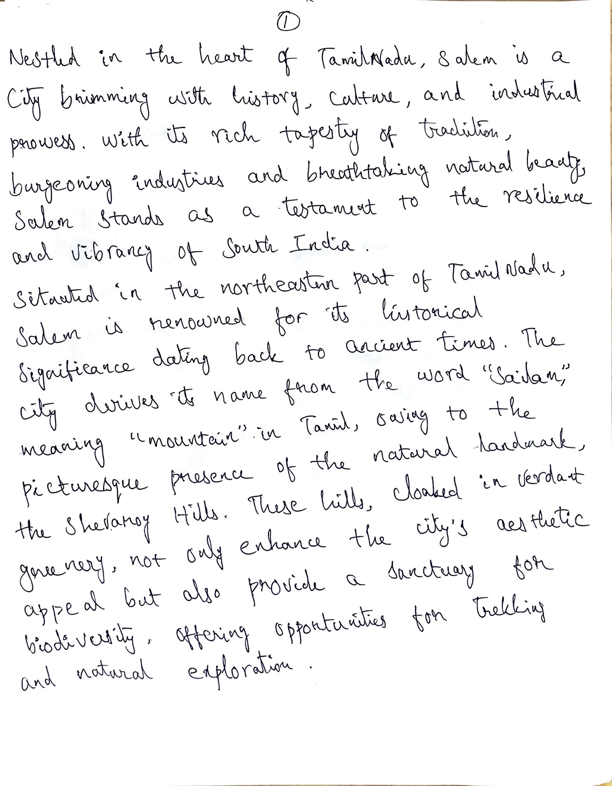 1
Nestled in the heart of TamilNadu, Salem is a
City brimming with history, culture, and industrial
prowess. With its rich tapestry of tradition,
burgeoning industries and breathtaking natural beauty,
Salem stands as a testament to the resilience
and vibrancy of South India.
Situated in the northeastern part of TamilNadu,
Salem is renowned for its historical
significance dating back to ancient times. The
city derives its name from the word "Sailam,"
meaning "mountain" in Tamil, owing to the
picturesque presence of the natural landmark,
the Shevaroy Hills. These hills, cloaked in verdant
greenery, not only enhance the city's aesthetic
appeal but also provide a sanctuary for
biodiversity, offering opportunities for trekking
and natural exploration.